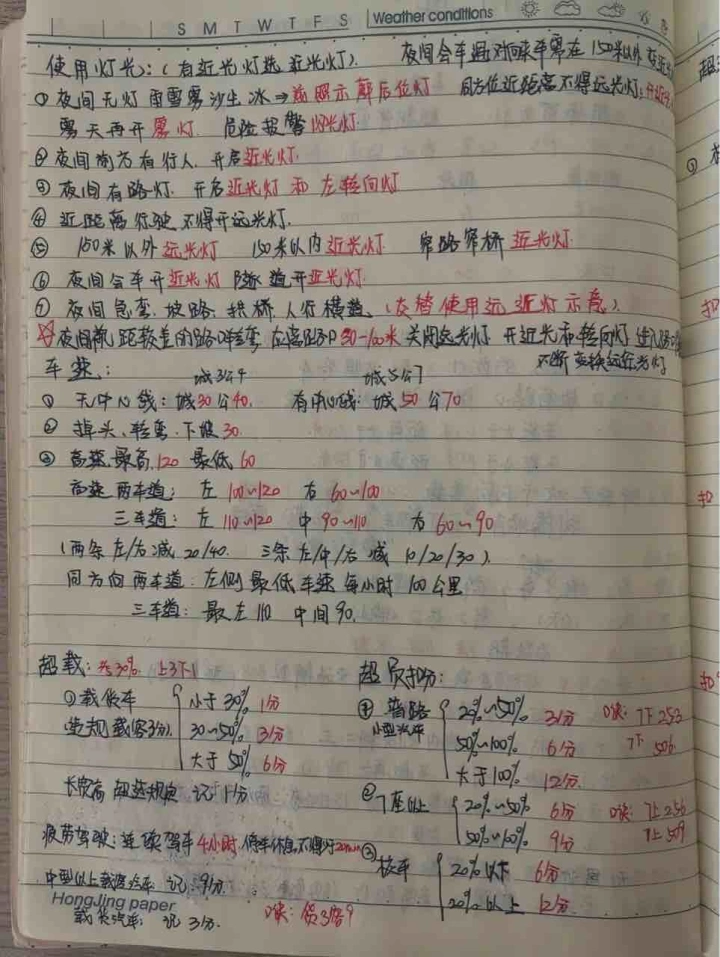 S M T W T F S Weather conditions
使用灯光:(有近光灯选近光灯). 夜间会车遇对向来车需在150米以外
①夜间无灯 雨雪雾沙尘冰→前照示廓后位灯 同方向近距离不得远光灯:
雾天再开雾灯 危险报警闪光灯.
② 夜间前方有行人 开启近光灯.
③ 夜间有路灯 开启近光灯 和 左转向灯
④ 近距离行驶 不得开远光灯.
⑤ 150米以外 远光灯 150米以内 近光灯 窄路窄桥 近光灯.
⑥ 夜间会车开近光灯 隧道开近光灯.
⑦ 夜间急弯.坡路.拱桥 人行横道 (交替使用远近灯示意).
距较差的路口转弯 在离路口 50-100米 关闭远光灯 开近光和转向灯 进入路口
不断变换远近光灯
车速:
城3公4 城5公7
① 无中心线: 城30公40. 有中心线: 城50 公70
② 掉头、转弯、下坡30.
③ 高速最高120 最低60
高速两车道: 左 100~120 右 60~100
三车道: 左 110~120 中 90~110 右 60~90
(两条左/右减 20/40. 三条左/中/右 减 10/20/30).
同方向两车道: 左侧最低车速 每小时 100公里
三车道: 最左110 中间90.
超载: 30% 上3下1 超员扣分:
①载货车 小于30% 1分
(违规载客3分) 30~50% 3分
大于50% 6分
长宽高 违规 记1分
疲劳驾驶: 连续驾车4小时.停车休息不得少于20min
中型以上载客汽车 记: 9分.
载货汽车: 记 3分. 口诀: 货3客9
① 普路 20%~50% 3分 口诀: 7下253
小型汽车 50%~100% 6分 7下 506
大于100% 12分
② 7座以上 20%~50% 6分 口诀: 7上256
50%~100% 9分 7上509
③ 校车 20%以下 6分
20%以上 12分
HongJing paper